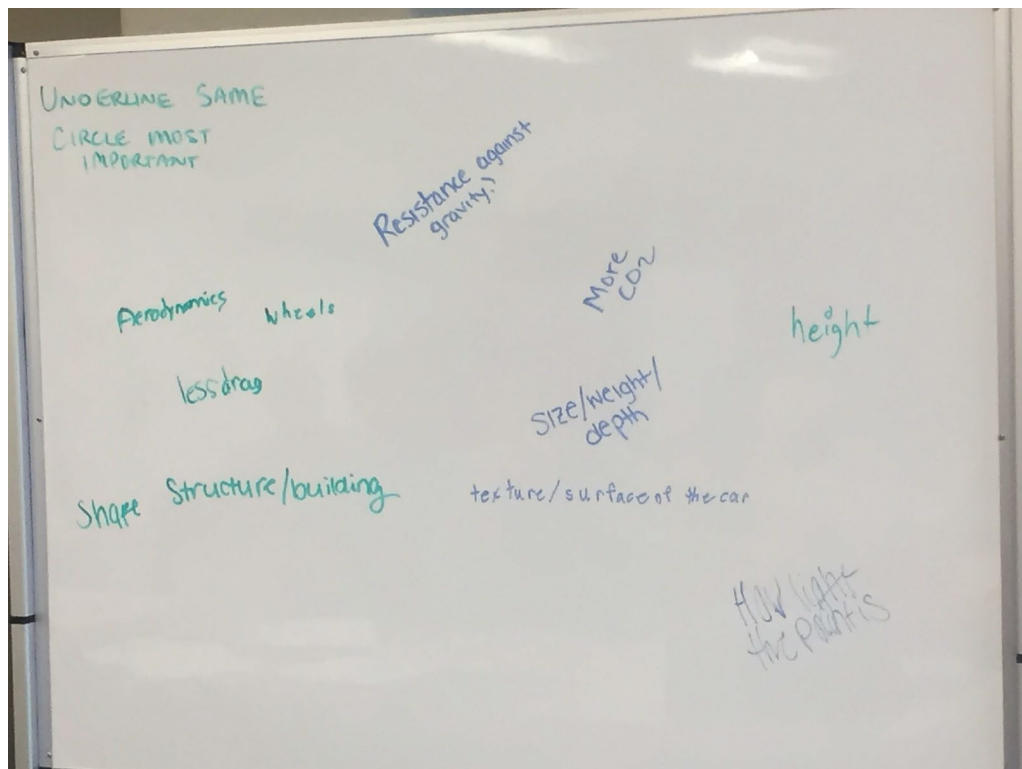 UNDERLINE SAME
CIRCLE MOST
IMPORTANT
Resistance against
gravity?
More
CO2
Aerodynamics
wheels
height
less drag
Size/weight/
depth
Shape
Structure/building
texture/surface of the car
How light
the paint is